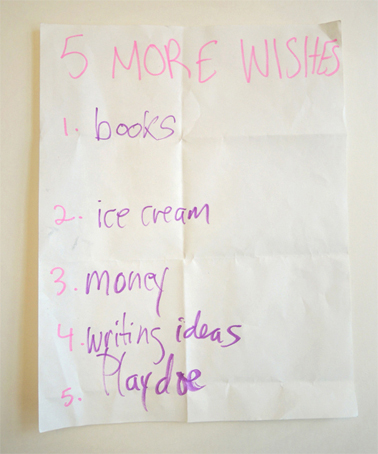 5 MORE WISHES
1. books
2. ice cream
3. money
4. writing ideas
5. Playdoe